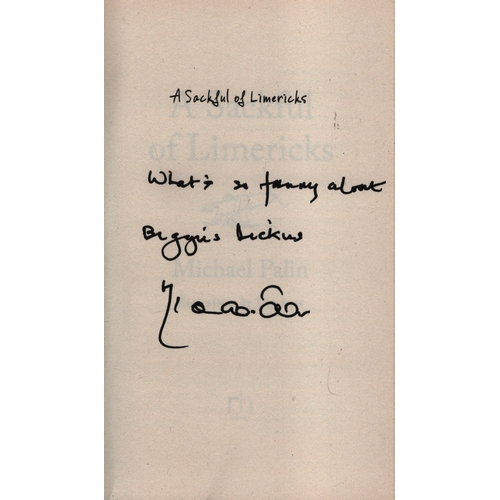 A Sackful of Limericks
A Sackful
of Limericks
What's so funny about
Biggus Dickus
Michael Palin